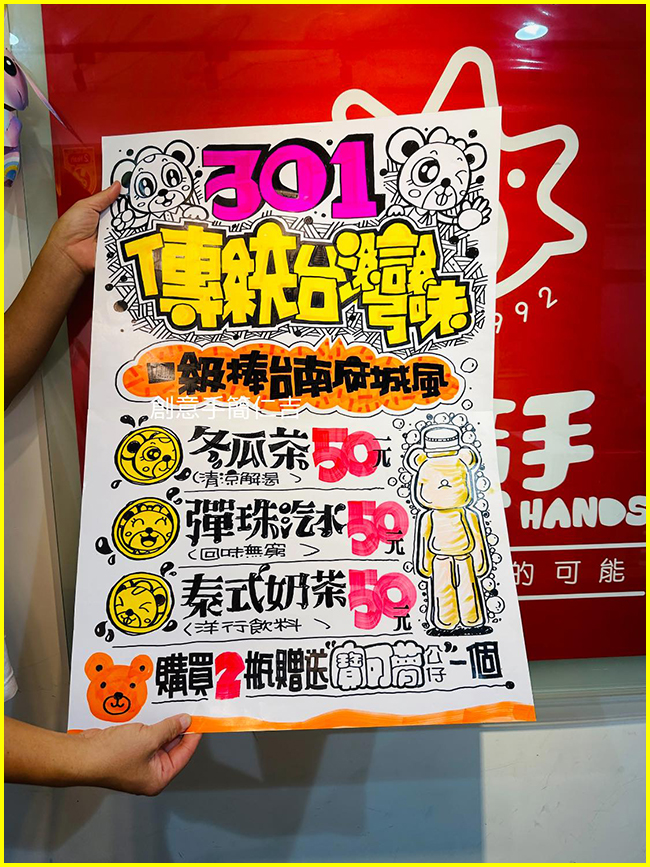 301
傳統台灣味
一級棒台南府城風
創意手簡仁吉
冬瓜茶50元
(清涼解渴)
彈珠汽水50元
(回味無窮)
泰式奶茶50元
(洋行飲料)
購買2瓶贈送"寶可夢公仔"一個
1992
手
HANDS
的可能